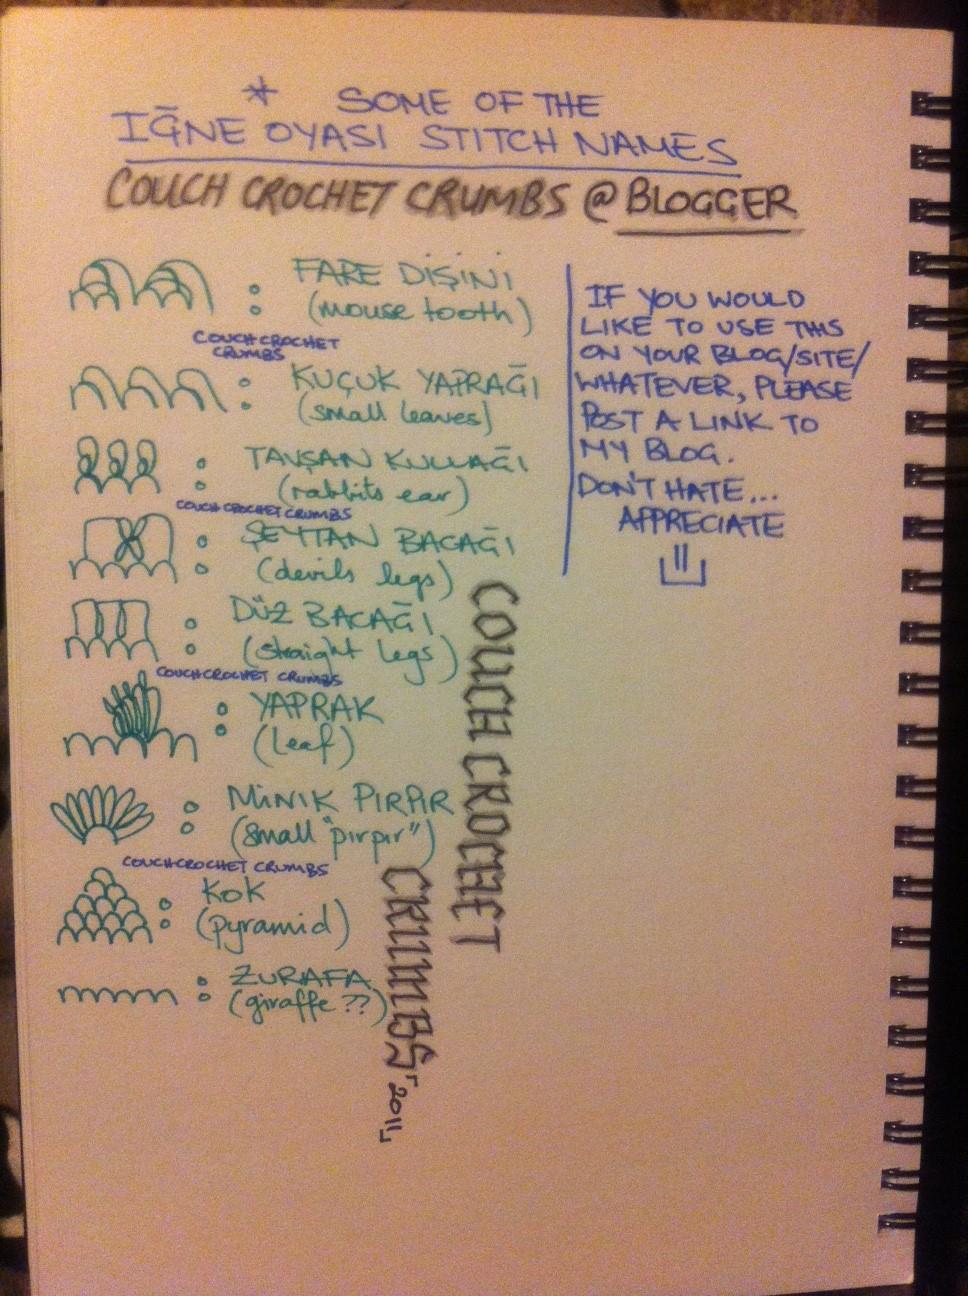 * SOME OF THE
IĞNE OYASI STITCH NAMES
COUCH CROCHET CRUMBS @ BLOGGER
: FARE DİŞİNİ
(mouse tooth)
COUCH CROCHET
CRUMBS
: KUÇUK YAPRAĞI
(small leaves)
: TAVŞAN KULLAĞI
(rabbits ear)
COUCH CROCHET CRUMBS
: ŞEYTAN BACAĞI
(devils legs)
: DÜZ BACAĞI
(straight legs)
COUCH CROCHET CRUMBS
: YAPRAK
(leaf)
: MİNIK PIRPIR
(small "pırpır")
COUCH CROCHET CRUMBS
: KOK
(pyramid)
: ZURAFA
(giraffe ??)
IF YOU WOULD
LIKE TO USE THIS
ON YOUR BLOG/SITE/
WHATEVER, PLEASE
POST A LINK TO
MY BLOG.
DON'T HATE...
APPRECIATE
COUCH CROCHET
CRUMBS「2011」